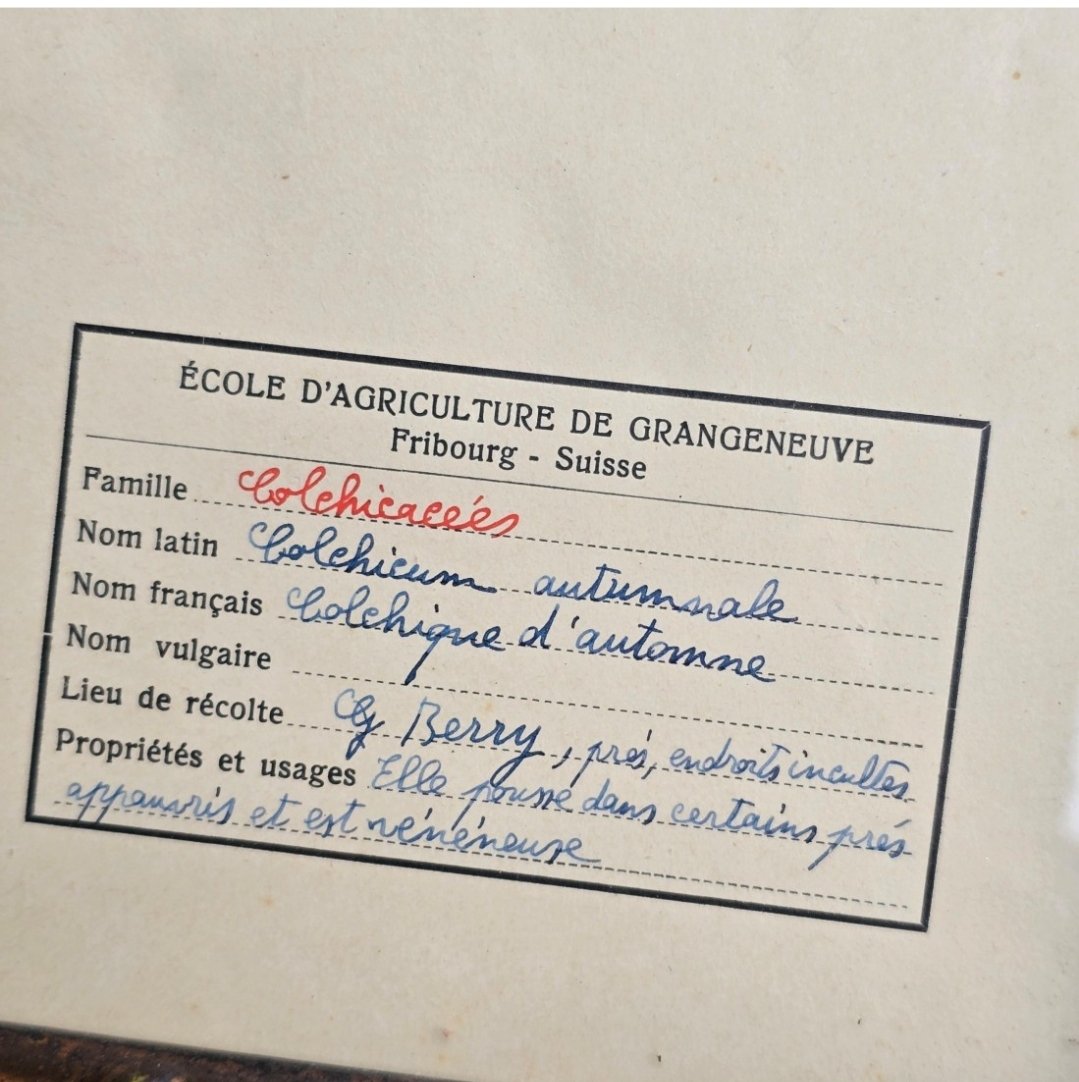 ÉCOLE D'AGRICULTURE DE GRANGENEUVE
Fribourg - Suisse
Famille Colchicacées
Nom latin Colchicum autumnale
Nom français Colchique d'automne
Nom vulgaire
Lieu de récolte Berry, prés, endroits incultes
Propriétés et usages Elle pousse dans certains prés
appauvris et est vénéneuse